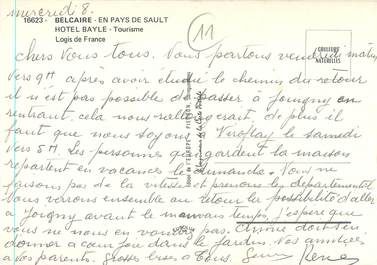 mercredi 8.
16623 - BELCAIRE - EN PAYS DE SAULT
HOTEL BAYLE - Tourisme
Logis de France
11
COULEURS
NATURELLES
Chers Vous Tous. Vous partons vendredi matin
vers 9H après avoir étudié le chemin du retour
il n'est pas possible de passer à Joigny en
rentrant, cela nous rallongerait, de plus il
faut que nous soyons à Viroflay le samedi
vers 5H. Les personnes qui gardent la maison
repartent en vacances le dimanche. Vous ne
faisons pas de la vitesse et prenons les départementales
Vous verrons ensemble au retour la possibilité d'aller
à Joigny avant le mauvais temps, j'espère que
vous ne nous en voudrez pas. Christine doit s'en
donner à cœur joie dans le jardin. Nos amitiés
à vos parents. Grosses bises à Tous.
Renée